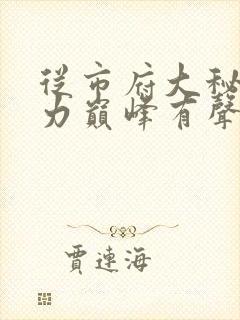 從市府大秘
力巔峰有聲
賈連海